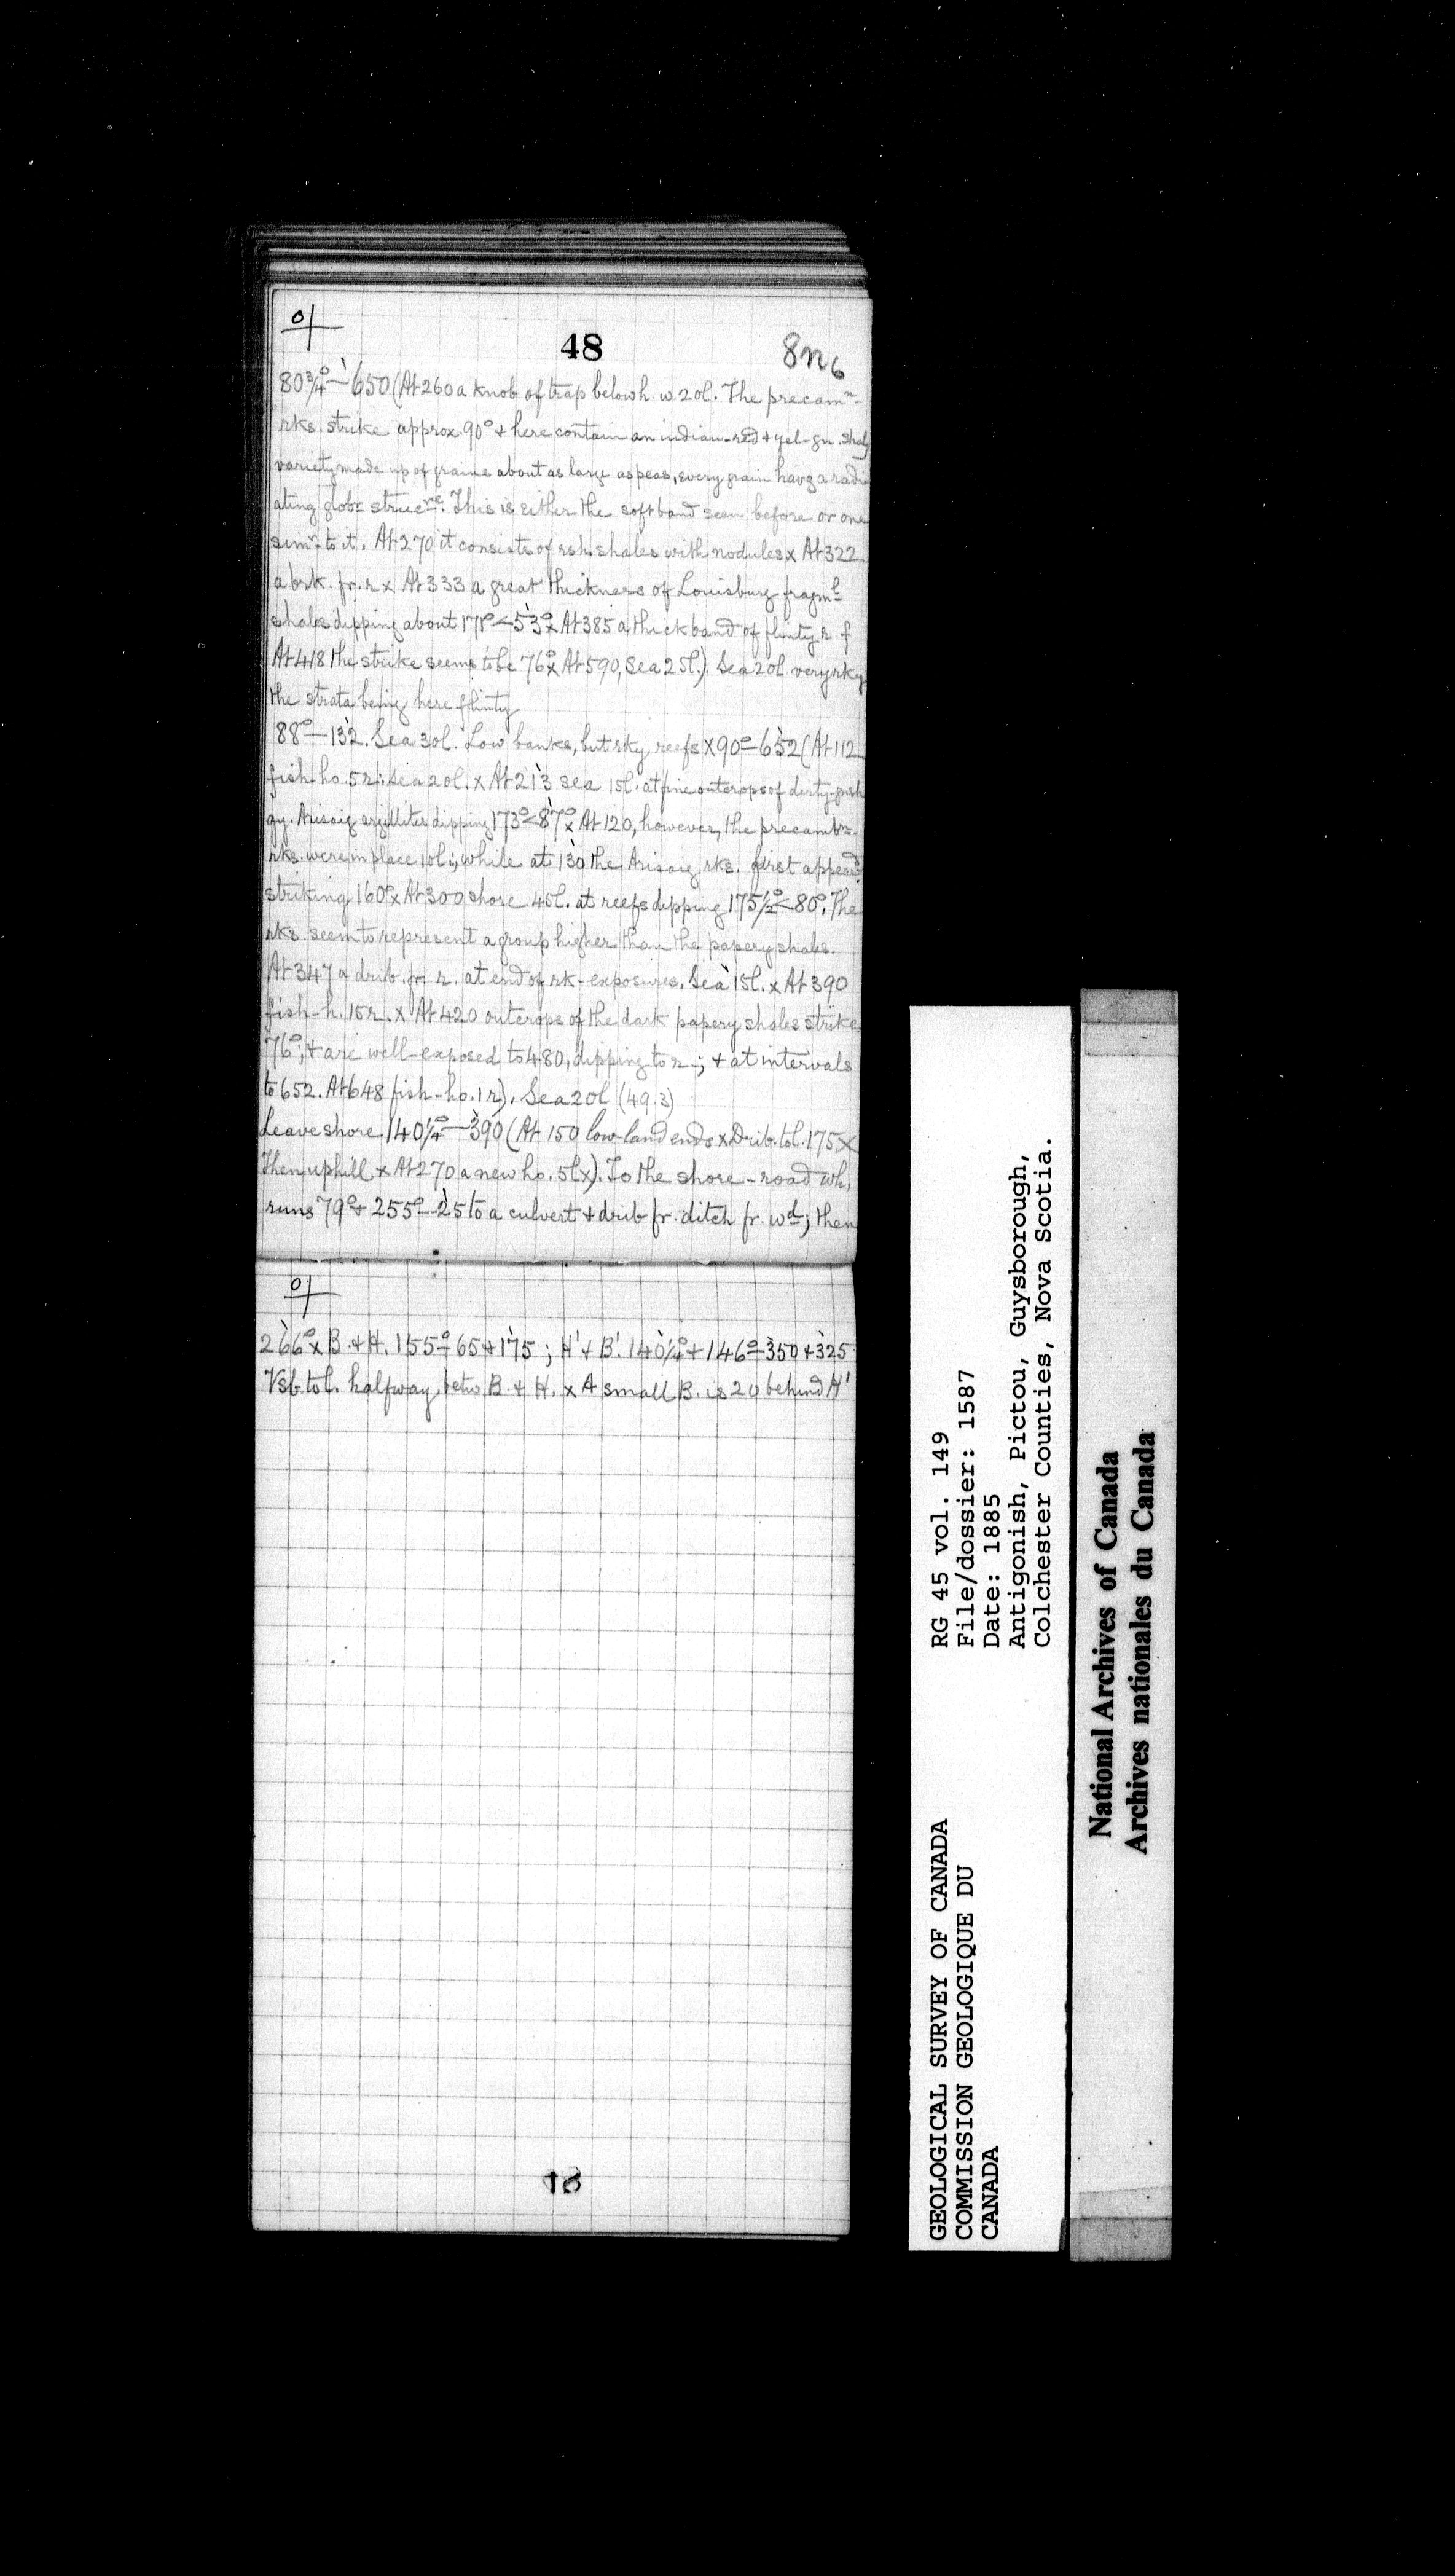 48
8n6
80¾° — 650 (At 260 a knob of trap below h. w. 20l. The precamn-
rks. strike approx. 90° + here contain an indian-red + yel-gn. shaly
variety made up of grains about as large as peas, every grain havg a radi-
ating globr strucre. This is either the soft band seen before or one
simr to it. At 270 it consists of rsh. shales with nodules x At 322
a brk. fr. r x At 333 a great thickness of Louisburg fragml
shales dipping about 171° < 53° x At 385 a thick band of flinty r f
At 418 the strike seems to be 76° x At 590, Sea 25l.). Sea 20l. very rky
the strata being here flinty
88° — 132. Sea 30l. Low banks, but rky, reefs x 90° — 652 (At 112
fish-ho. 5r; Sea 20l. x At 213 sea 15l. at fine outcrops of dirty-gnsh
gy. Arisaig argillites dipping 173° < 87° x At 120, however, the precambn
rks. were in place 10l; while at 130 the Arisaig rks. first appeard
striking 160° x At 300 shore 45l. at reefs dipping 175½° < 80°. The
rks. seem to represent a group higher than the papery shales.
At 347 a drib. fr. r. at end of rk-exposures. Sea 15l. x At 390
fish-h. 15r. x At 420 outcrops of the dark papery shales strike
76°; + are well-exposed to 480, dipping to r-; + at intervals
to 652. At 648 fish-ho. 1r). Sea 20l (49.3)
Leave shore 140¼° — 390 (At 150 low-land ends x Drib. to l. 175 x
Then uphill x At 270 a new ho. 5l x). To the shore-road wh.
runs 79° + 255° — 25 to a culvert + drib fr. ditch fr. wd; then
266° x B. + H. 155° — 65 + 175; H' + B'. 140¼° + 146° — 350 + 325
Vsb. to l. halfway betw B. + H. x A small B. is 20 behind H'
18
RG 45 vol. 149
File/dossier: 1587
Date: 1885
Antigonish, Pictou, Guysborough,
Colchester Counties, Nova Scotia.
GEOLOGICAL SURVEY OF CANADA
COMMISSION GEOLOGIQUE DU
CANADA
National Archives of Canada
Archives nationales du Canada